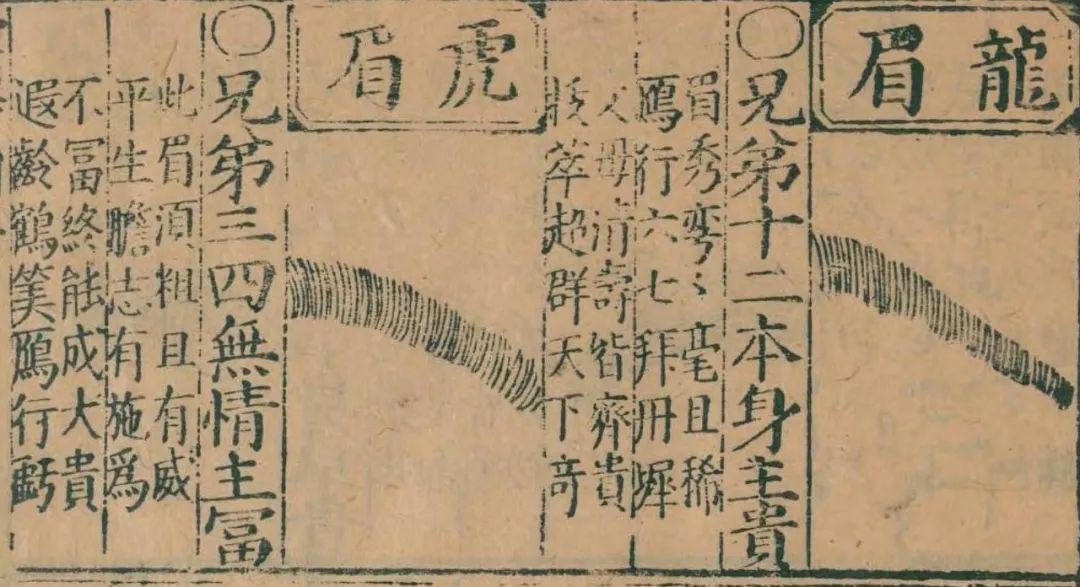 龍眉
〇兄第十二本身主貴
眉秀弯〻毫且稀
鴈行六七拜丹墀
父母清壽皆齊貴
拔萃超群天下奇
虎眉
〇兄第三四無情主冨
此眉湏粗且有威
平生膽志有施爲
不冨終能成大貴
遐齡鶴筭鴈行虧